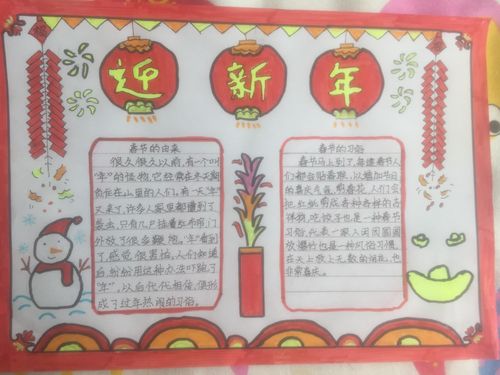 迎新年
春节的由来
很久很久以前,有一个叫
"年"的怪物,它经常在冬天祸
害住在山里的人们。有一天"年"
又来了,许多人家里都遭到了
袭击,只有几户挂着红布帘,门
外放了很多鞭炮。"年"看到
了,感觉很害怕,人们知道
后,纷纷用这种办法吓跑了
"年",以后代代相传,便形
成了过年热闹的习俗。
春节的习俗
春节马上到了,每逢春节人
们都会贴春联,以增加节日
的喜庆气氛。剪窗花,人们会
把红纸剪成各种各样的吉
祥物,吃饺子也是一种春节
习俗,代表一家人团团圆圆
放爆竹也是一种风俗习惯,
在天上放上无数的烟花,也
非常喜庆。